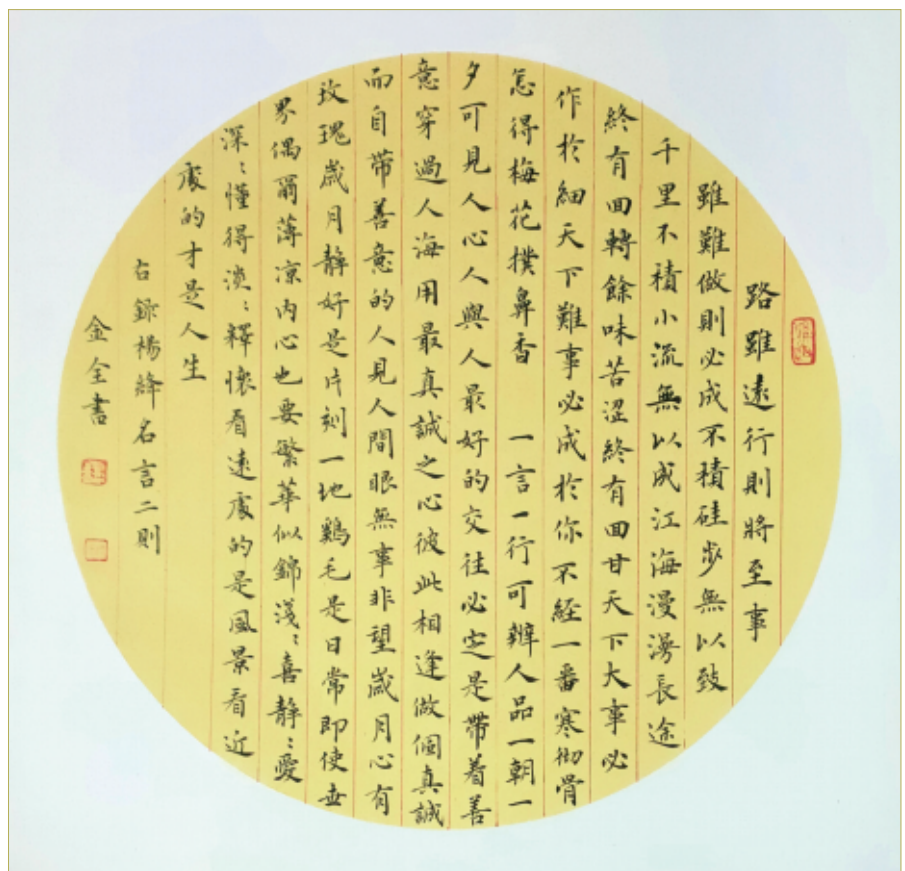 路雖遠行則將至事
雖難做則必成不積硅步無以致
千里不積小流無以成江海漫漫長途
終有回轉餘味苦涩終有回甘天下大事必
作於細天下難事必成於你不經一番寒彻骨
怎得梅花撲鼻香 一言一行可辨人品一朝一
夕可見人心人與人最好的交往必定是帶着善
意穿過人海用最真誠之心彼此相逢做個真誠
而自帶善意的人見人間眼無事非望歲月心有
玫瑰歲月靜好是片刻一地鷄毛是日常即使世
界偶爾薄凉内心也要繁華似錦淺:喜靜:愛
深:懂得淡:釋懷看遠處的是風景看近
處的才是人生
右錄楊絳名言二則
金全書